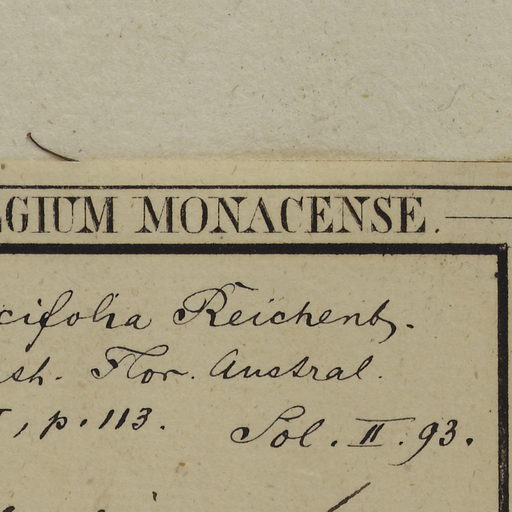 GIUM MONACENSE.
cifolia Reichenb.
sh. Flor. Austral.
, p. 113. Sol. II. 93.